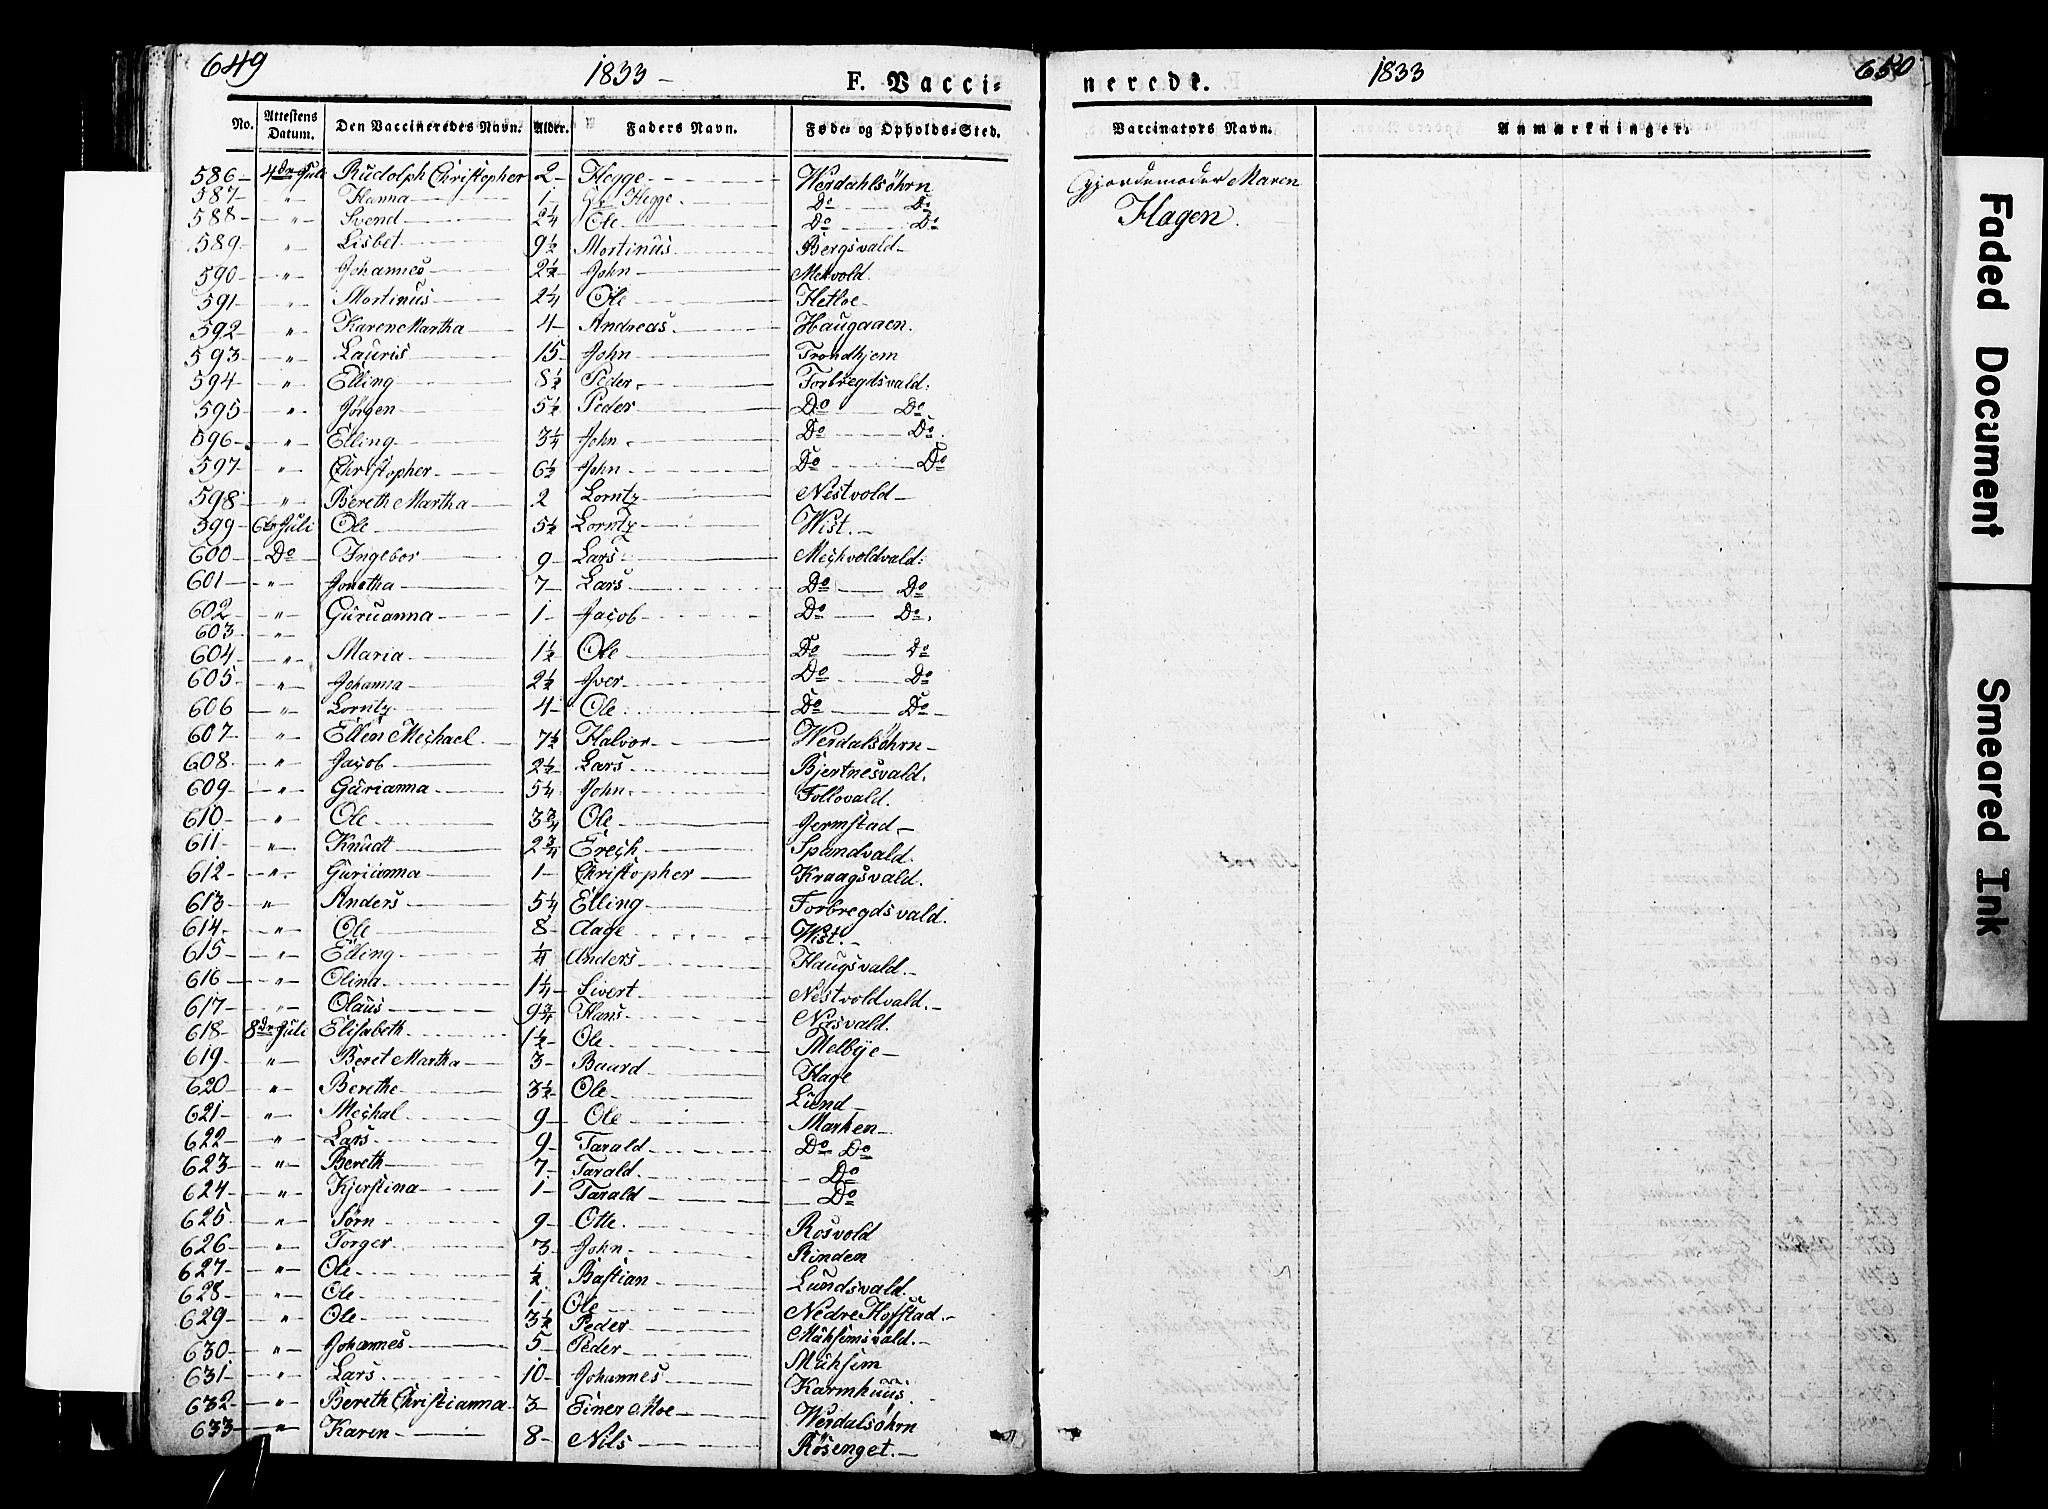 649 1833 F. Vacci-
neredk. 1833 650
No. Attestens Datum. Den Vaccineredes Navn. Alder. Faders Navn. Føde- og Opholds-Sted. Vaccinators Navn. Anmærkninger.
586 4de Juli Rudolph Christopher 2 Hegge Werdahlsöhrn Gjordemoder Maren
587 " Hanna 1 Hegge Do Do Hagen.
588 " Svend 2¼ Ole Do Do
589 " Lisbet 9½ Mortinus Bergsvald
590 " Johannes 2½ John Mekvold
591 " Mortinus 2¼ Ole Hetloe
592 " Karen Martha 4 Andreas Haugaaen.
593 " Lauris 15 John Trondhjem
594 " Elling 8½ Peder Forbregdsvald:
595 " Jörgen 5½ Peder Do Do
596 " Elling 3¼ John Do Do
597 " Christopher 6½ John Do Do
598 " Bereth Martha 2 Lorntz Nestvold
599 6te Juli Ole 5½ Lorntz Wist.
600 Do Ingebor 9 Lars Mechvoldvald:
601 " Jonetha 7 Lars Do Do
602 " Guruanna 1 Jacob Do Do
603 "
604 " Maria 1½ Ole Do Do
605 " Johanna 2½ Jver Do Do
606 " Lorntz 4 Ole Do Do
607 " Ellen Mechael 7½ Halvor Werdalsöhrn
608 " Jacob 2½ Lars Bjertnesvald.
609 " Gurianna 5¼ John Follovald.
610 " Ole 3¾ Ole Jermstad
611 " Knudt 2¾ Erech Spandvald.
612 " Gurianna 1 Christopher Kraagsvald.
613 " Anders 5¼ Elling Forbregdsvald.
614 " Ole 8 Aage Wist.
615 " Elling ¼ Anders Haugsvald.
616 " Olina 1¼ Sivert Nestvoldvald.
617 " Olaus 9¾ Hans Nesvald.
618 8de Juli Elisabeth 1½ Ole Melbye
619 " Beret Martha 3 Baard Hage
620 " Berethe 3½ Ole Lund
621 " Mechal 9 Ole Marken
622 " Lars 9 Tarald Do Do
623 " Bereth 7 Tarald Do
624 " Kjerstina 1 Tarald Do
625 " Sörn 9 Otte Rosvold
626 " Torger 3 John Rinden
627 " Ole ½ Bastian Lundsvald.
628 " Ole 1 Ole Nedre Hofstad.
629 " Ole 3½ Peder Mühsimsvald.
630 " Johannes 5 Peder Mühsim
631 " Lars 10 Johannes Karmhuus
632 " Bereth Christianna 3 Einer Moe Werdalsöhrn
633 " Karen 8 Nils Rösenget.
Faded Document
Smeared Ink